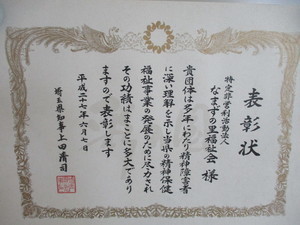 表彰状
特定非営利活動法人
なまずの里福祉会 様
貴団体は多年にわたり精神障害者
に深い理解を示し当県の精神保健
福祉事業の発展のために尽力され
その功績はまことに多大であり
ますので表彰します
平成二十七年六月七日
埼玉県知事 上田清司